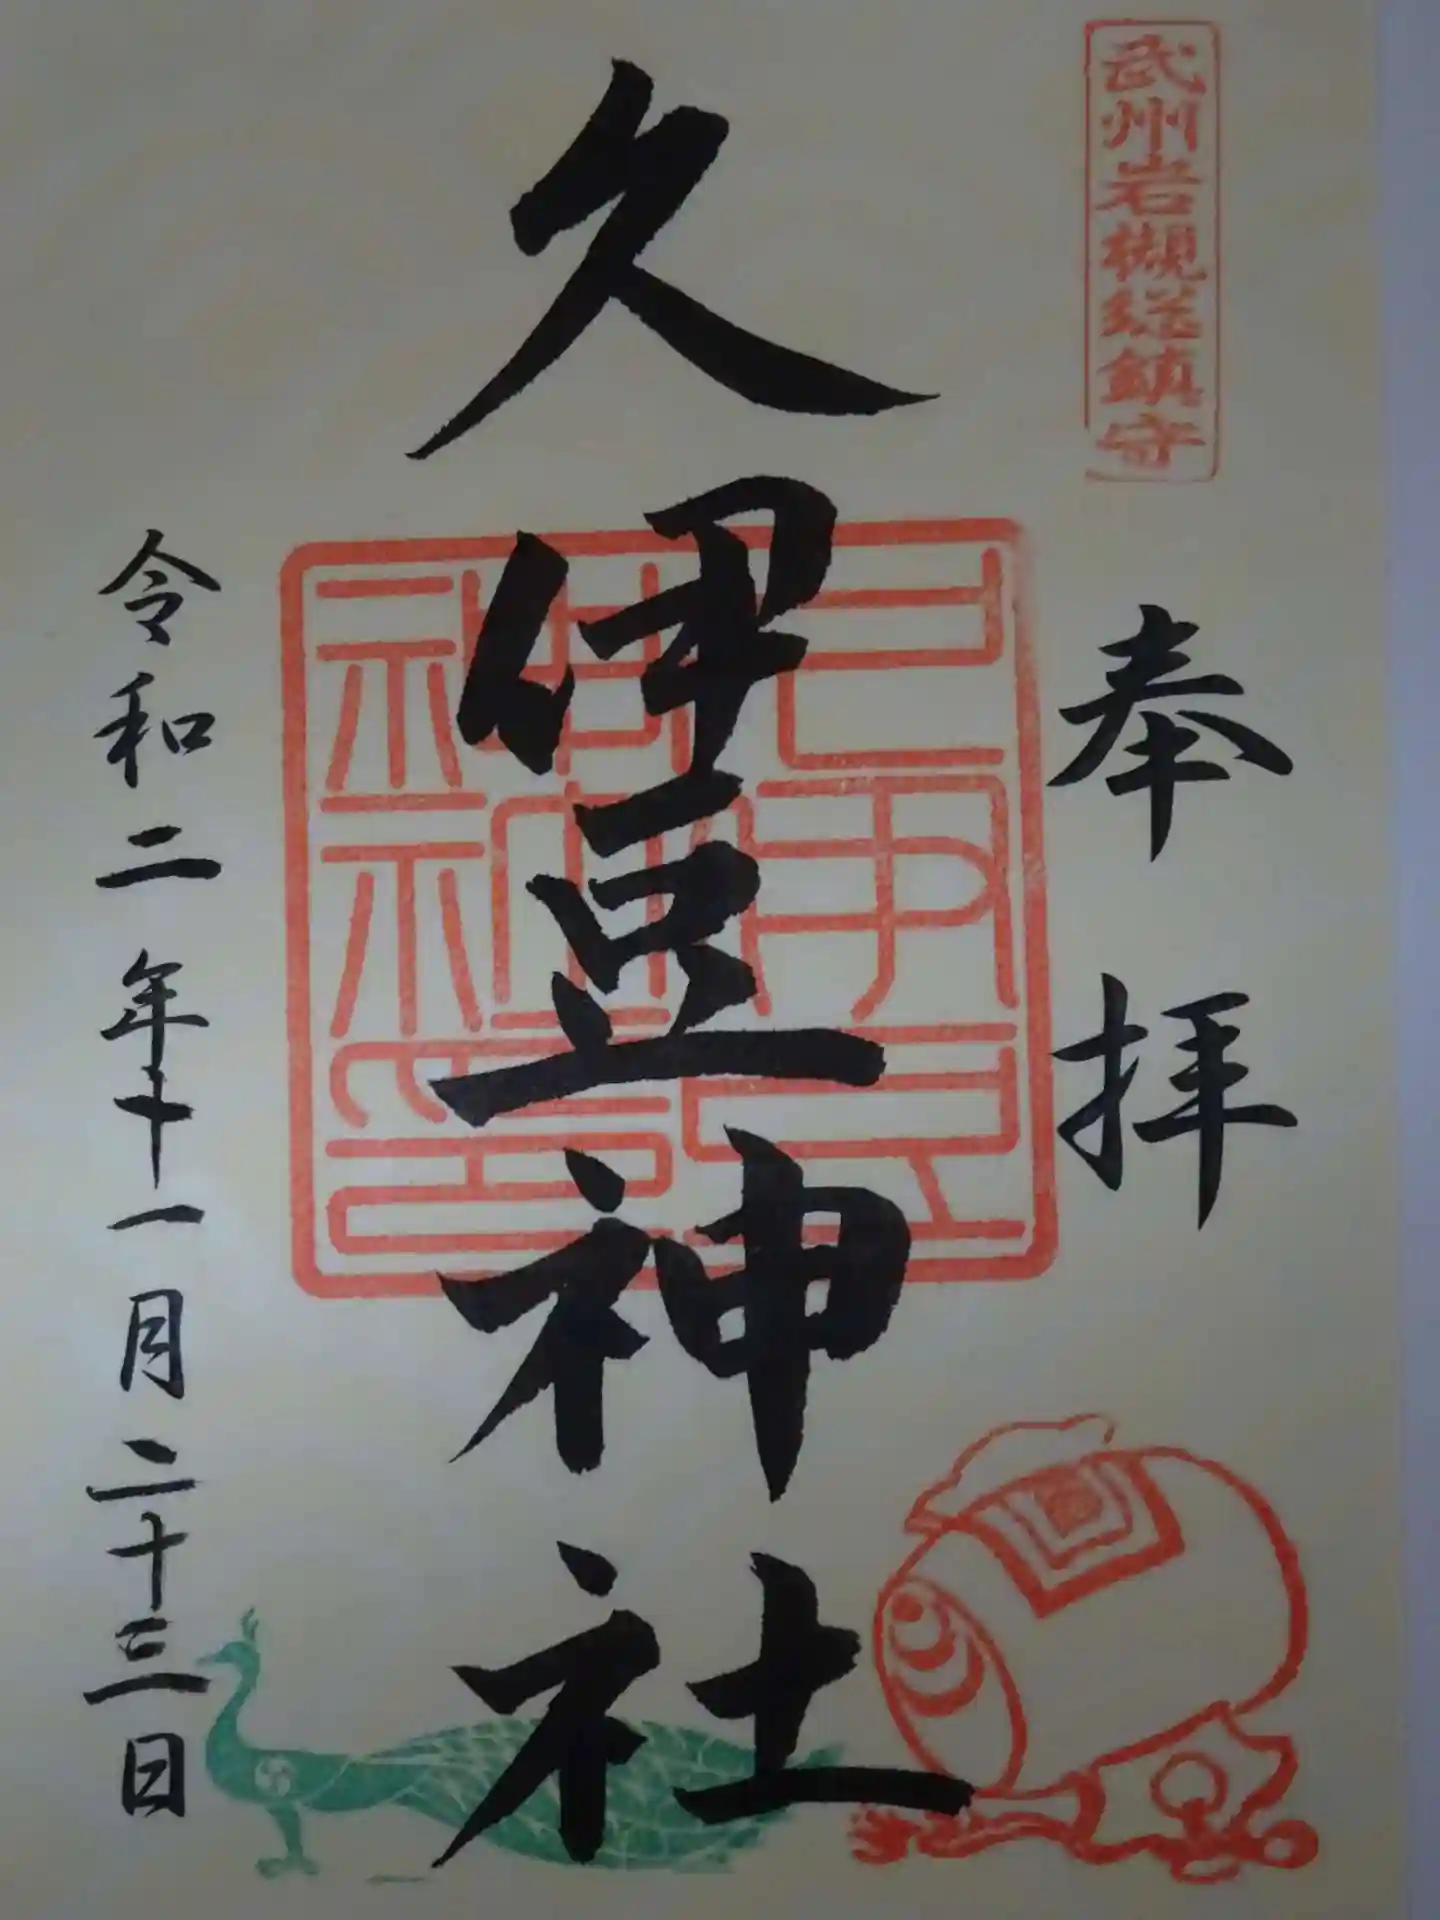 武州岩槻総鎮守
奉拝
久伊豆神社
令和二年十一月二十三日